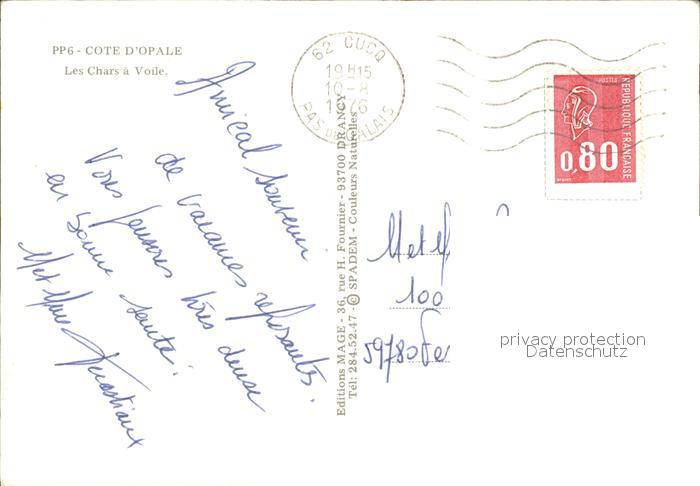 PP6 - COTE D'OPALE
Les Chars à Voile.
62 CUCQ
19H15
10-8
1976
PAS DE CALAIS
POSTES
REPUBLIQUE FRANÇAISE
0,80
Amical souvenir
de vacances reposantes.
Vous pensons très
en bonne santé.
M et Mme
Editions MAGE - 36, rue H. Fournier - 93700 DRANCY
Tél: 284.52.47 - © SPADEM - Couleurs Naturelles
M et M
100
59780
privacy protection
Datenschutz